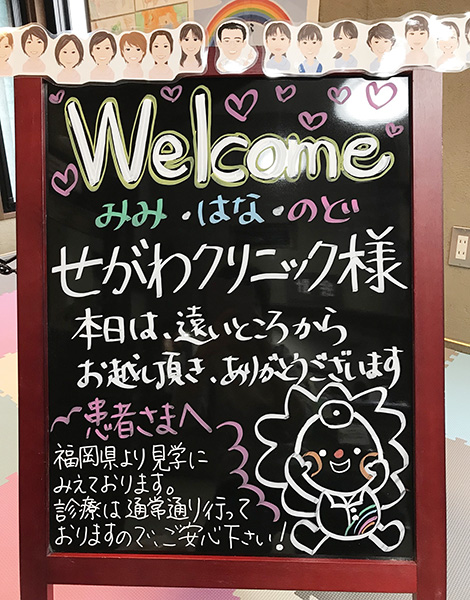 Welcome
みみ・はな・のど
せがわクリニック様
本日は、遠いところから
お越し頂き、ありがとうございます
〜患者さまへ
福岡県より見学に
みえております。
診療は通常通り行って
おりますので、ご安心下さい!